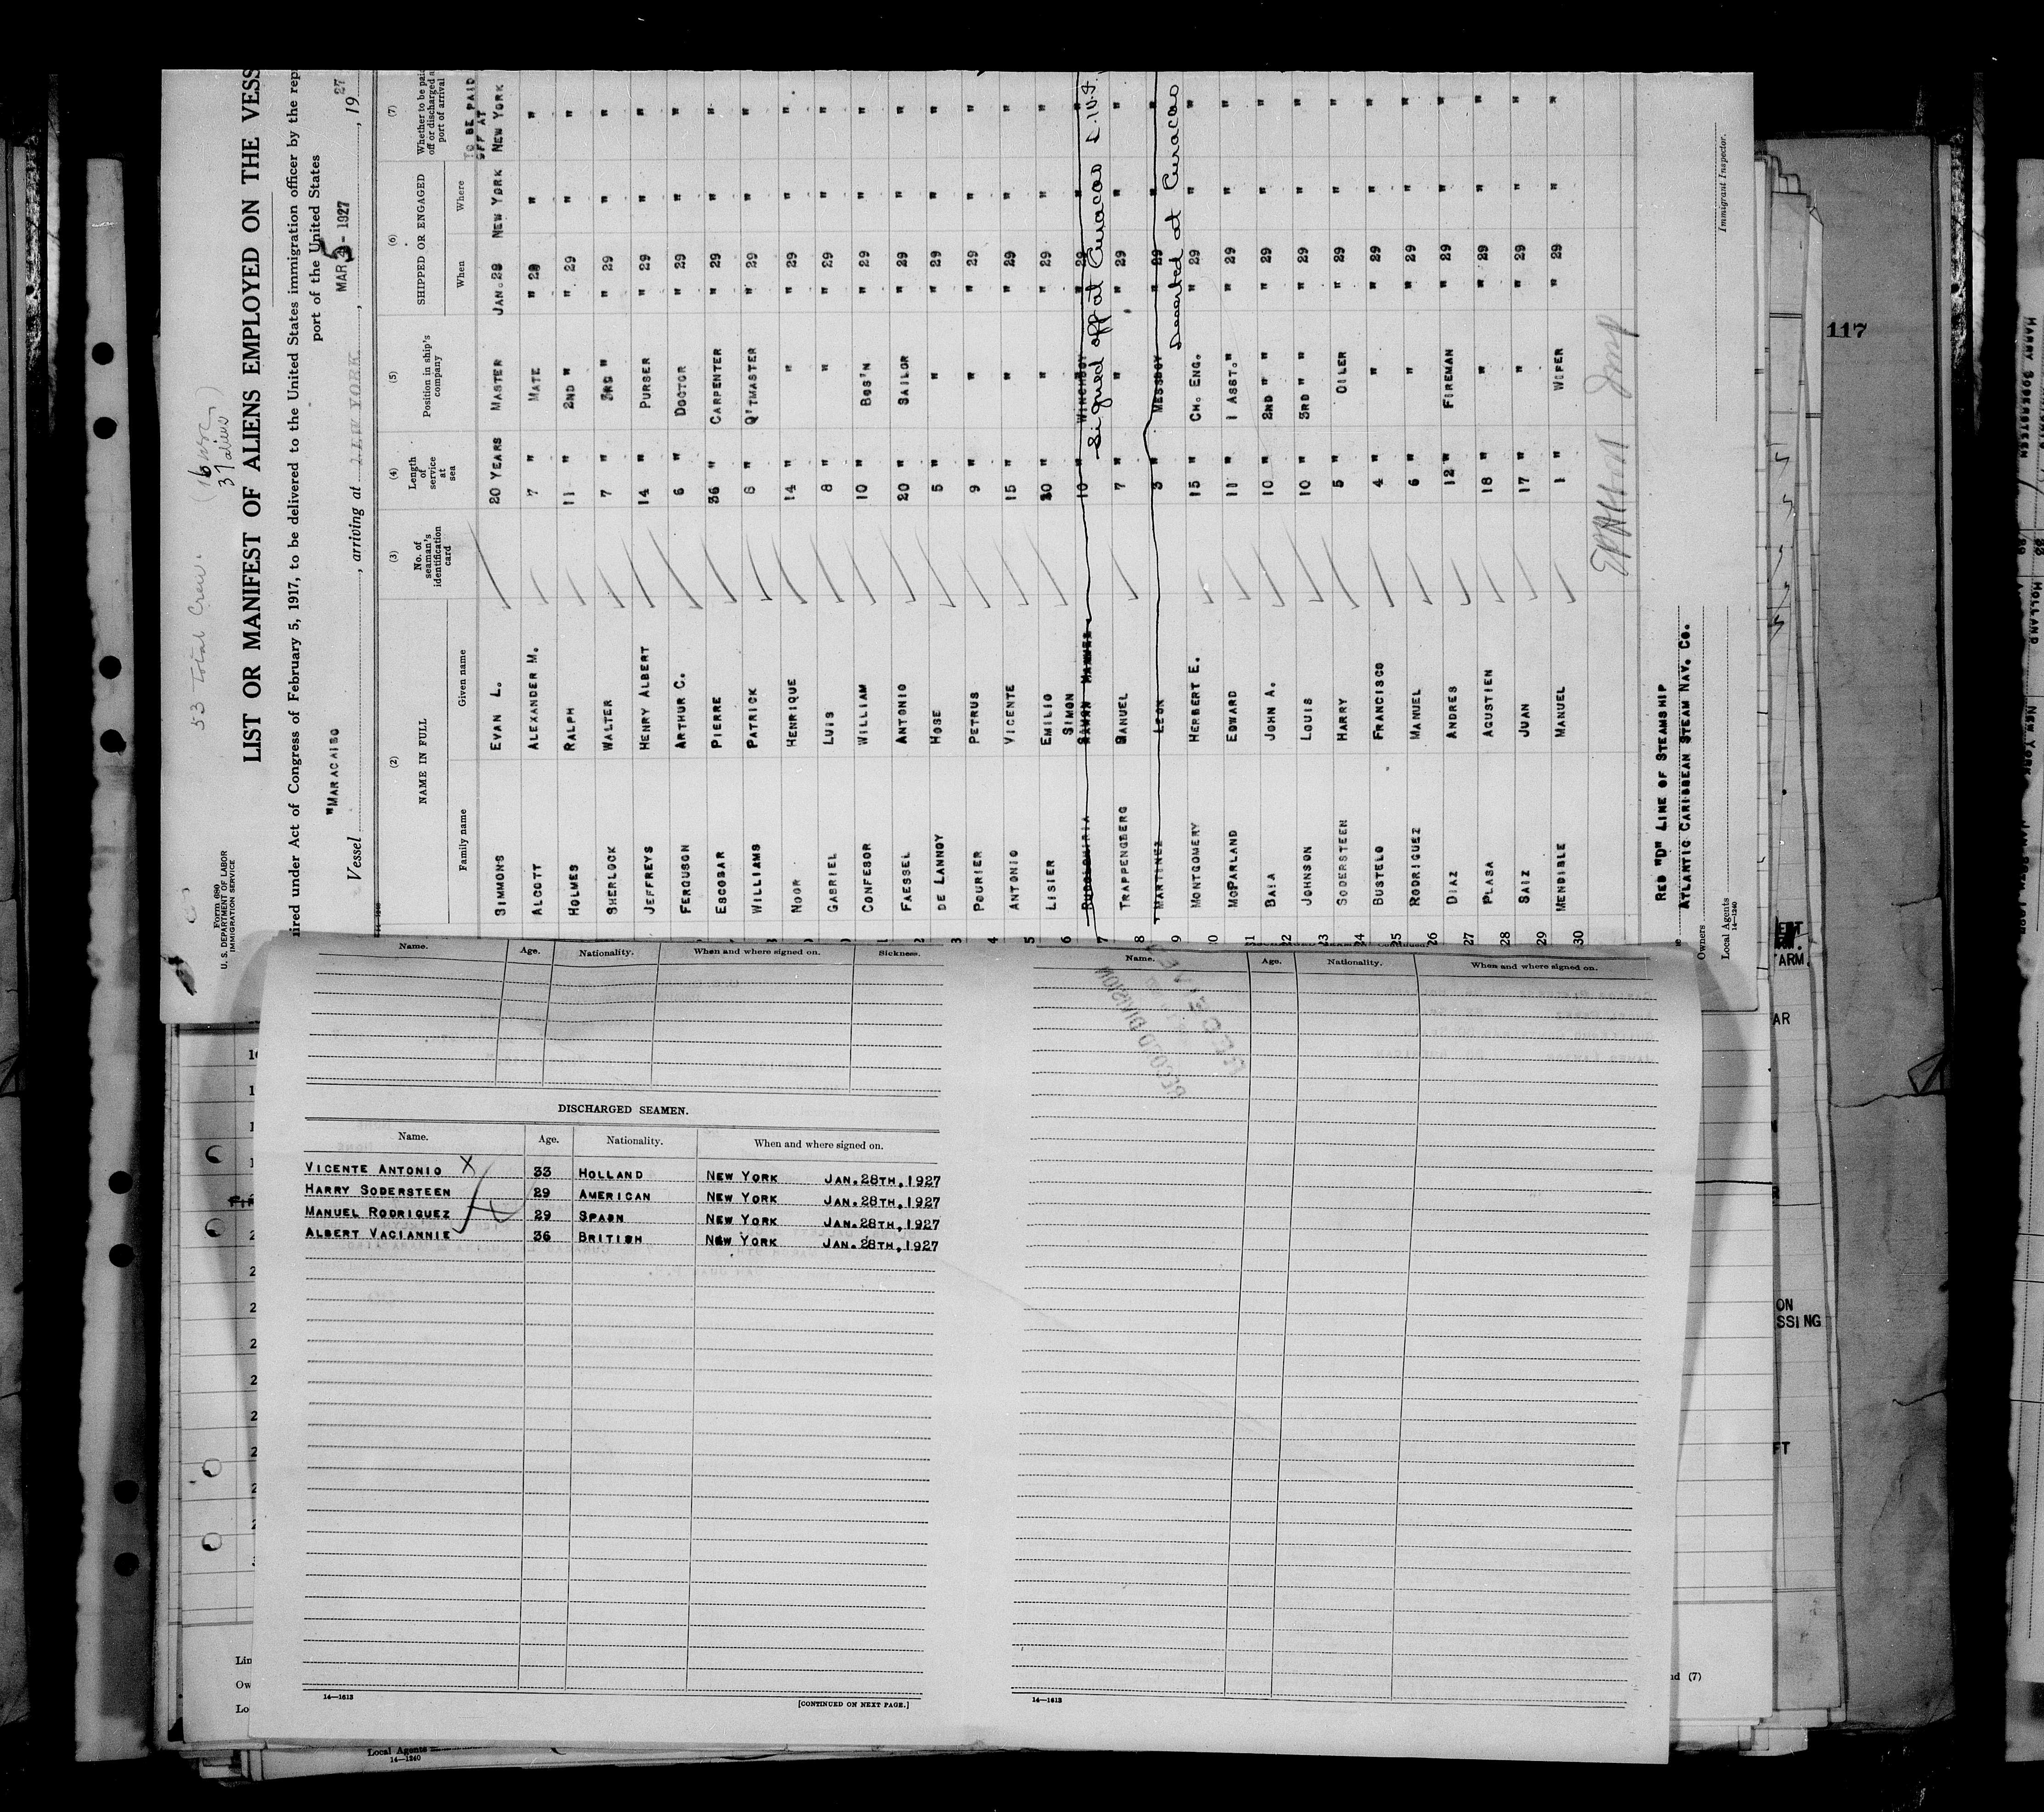 53 Total Crew.
37 aliens
Form 680
U. S. DEPARTMENT OF LABOR
IMMIGRATION SERVICE
LIST OR MANIFEST OF ALIENS EMPLOYED ON THE VESS
ired under Act of Congress of February 5, 1917, to be delivered to the United States immigration officer by the rep
port of the United States
Vessel "MARACAIBO , arriving at NEW YORK , MAR 5 - 1927 , 19 27
(2) (3) (4) (5) (6) (7)
NAME IN FULL No. of seaman's identification card Length of service at sea Position in ship's company SHIPPED OR ENGAGED Whether to be paid off or discharged a port of arrival
Family name Given name When Where
TO BE PAID OFF AT
SIMMONS EVAN L. 20 YEARS MASTER JAN. 28 NEW YORK NEW YORK
ALCOTT ALEXANDER M. 7 " MATE " 28 " "
HOLMES RALPH 11 " 2ND " " 29 " "
SHERLOCK WALTER 7 " 3RD " " 29 " "
JEFFREYS HENRY ALBERT 14 " PURSER " 29 " "
FERGUSON ARTHUR C. 6 " DOCTOR " 29 " "
ESCOBAR PIERRE 36 " CARPENTER " 29 " "
WILLIAMS PATRICK 8 " Q'TMASTER " 29 " "
NOOR HENRIQUE 14 " " " 29 " "
GABRIEL LUIS 8 " " " 29 " "
CONFESOR WILLIAM 10 " BOS'N " 29 " "
FAESSEL ANTONIO 20 " SAILOR " 29 " "
DE LANNOY HOSE 5 " " " 29 " "
POURIER PETRUS 9 " " " 29 " "
ANTONIO VICENTE 15 " " " 29 " "
LISIER EMILIO 20 " " " 29 " "
SIMON
10 " WINCHBOY " 29 " "
Signed off at Curacao
TRAPPENGBERG DANUEL 7 " " " 29 " "
MARTINEZ LEON 3 " MESSBOY " 29 " "
Deserted at Curacao
MONTGOMERY HERBERT E. 15 " CH. ENG. " 29 " "
MCPARLAND EDWARD 11 " 1 ASST. " " 29 " "
BAIA JOHN A. 10 " 2ND " " " 29 " "
JOHNSON LOUIS 10 " 3RD " " " 29 " "
SODERSTEEN HARRY 5 " OILER " 29 " "
BUSTELO FRANCISCO 4 " " " 29 " "
RODRIGUEZ MANUEL 6 " " " 29 " "
DIAZ ANDRES 12 " FIREMAN " 29 " "
PLASA AGUSTIEN 18 " " " 29 " "
SAIZ JUAN 17 " " " 29 " "
MENDIBLE MANUEL 1 " WIPER " 29 " "
30
RED "D" LINE OF STEAMSHIP
Owners ATLANTIC CARIBBEAN STEAM NAV. CO.
Local Agents
14—1240
Immigrant Inspector.
Name. Age. Nationality. When and where signed on. Sickness.
DISCHARGED SEAMEN.
Name. Age. Nationality. When and where signed on.
VICENTE ANTONIO X 33 HOLLAND NEW YORK JAN.28TH,1927
HARRY SODERSTEEN 29 AMERICAN NEW YORK JAN.28TH,1927
MANUEL RODRIGUEZ 29 SPAON NEW YORK JAN.28TH,1927
ALBERT VACIANNIE 36 BRITISH NEW YORK JAN.28TH,1927
14—1613 [CONTINUED ON NEXT PAGE.]
Name. Age. Nationality. When and where signed on.
14—1613
Local Agents
14—1240
117
ARM.
AR
ON
SSING
FT
(7)
Lin
Ow
Lo
HARRY SODERSTEEN
HOLLAND
NEW YORK